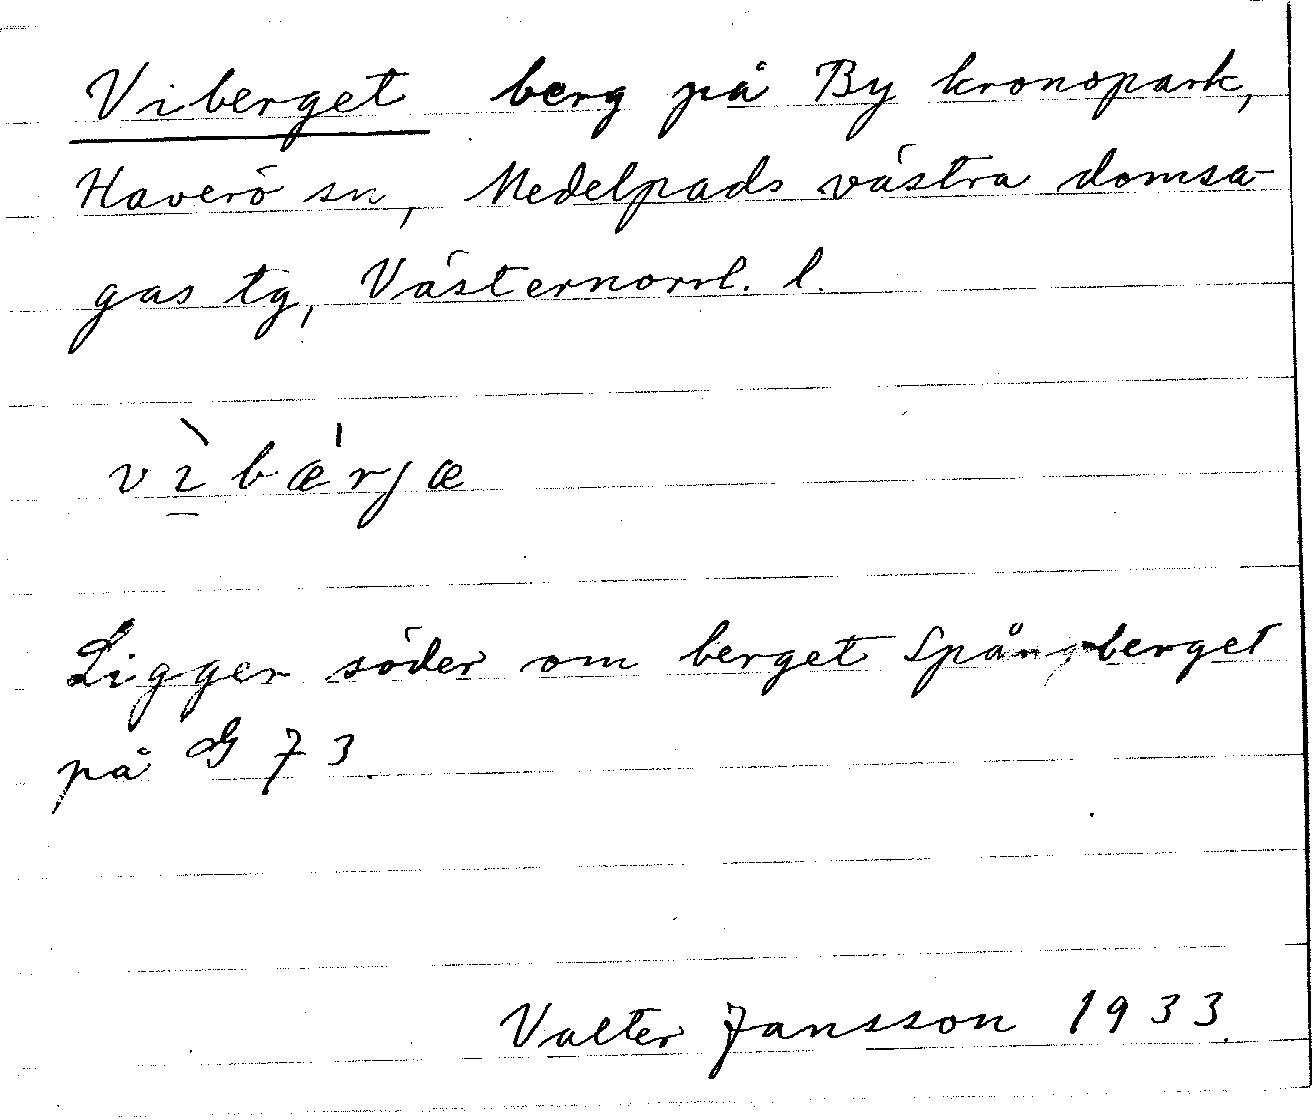 Viberget berg på By kronopark,
Haverö sn, Medelpads västra domsa-
gas tg, Västernorrl. l.
vɪ̱̀bæ'rjæ
Ligger söder om berget Spångberget
på G 73.
Valter Jansson 1933.